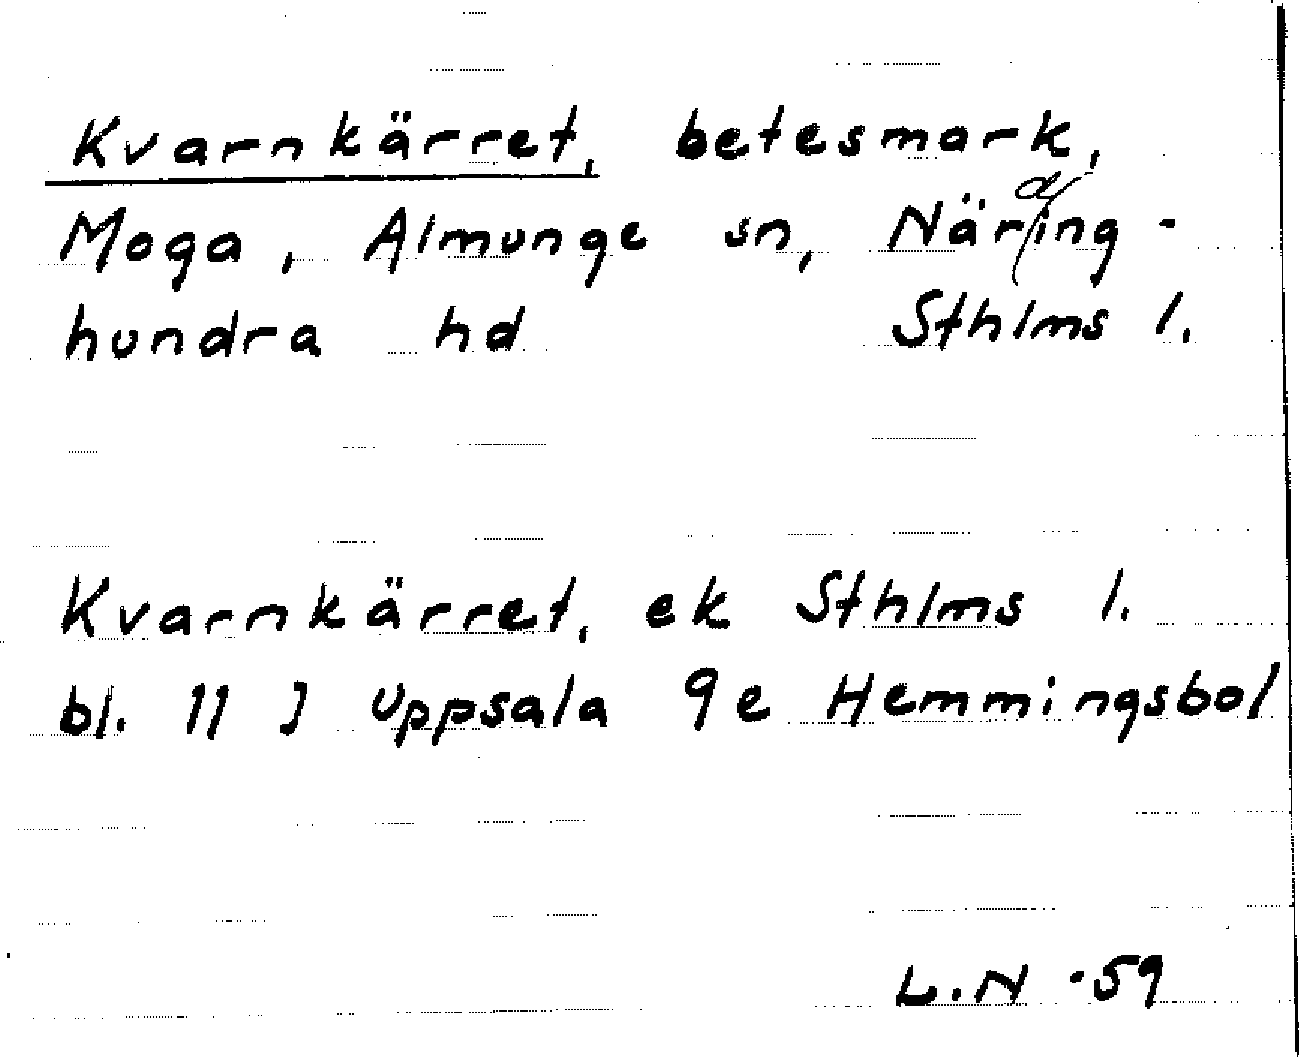 Kvarnkärret, betesmark,
Moga, Almunge sn, Näring-
hundra hd Sthlms l.
Kvarnkärret, ek Sthlms l.
bl. 11 J Uppsala 9e Hemmingsbol
L.N -59